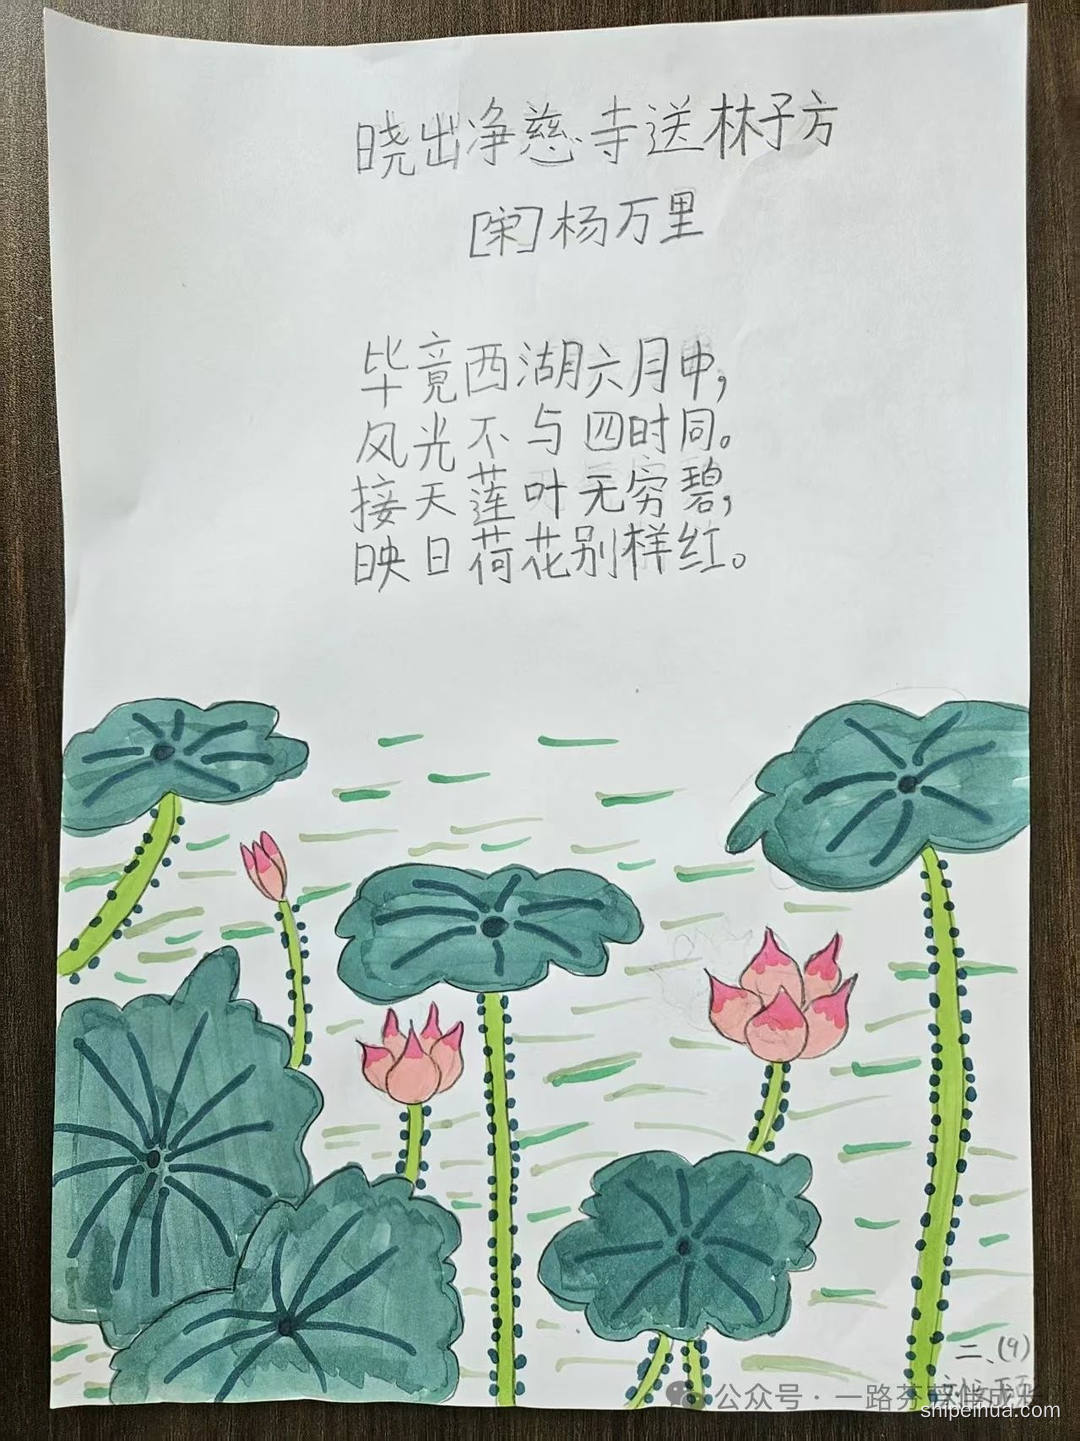 晓出净慈寺送林子方
[宋]杨万里
毕竟西湖六月中，
风光不与四时同。
接天莲叶无穷碧，
映日荷花别样红。
二、(9)
公众号·一路芬芳伴成长
shipeihua.com